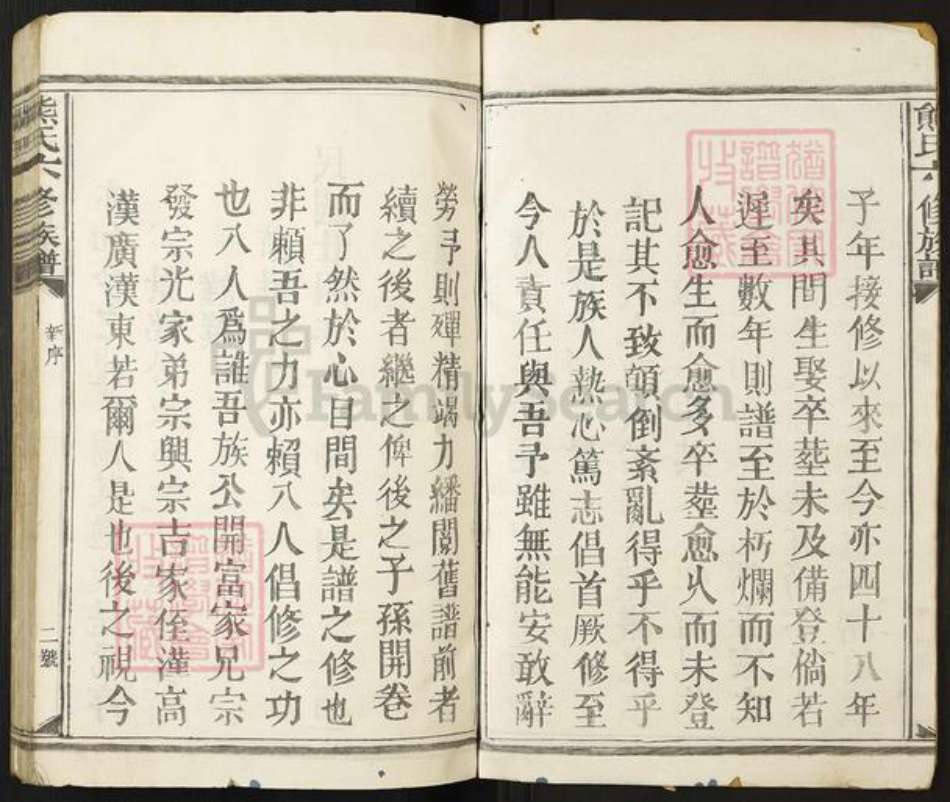 熊氏六修族譜
子年接修以來至今亦四十八年
矣其間生娶卒塟未及備登倘若
遲至數年則譜至於朽爛而不知
人愈生而愈多卒塟愈乆而未登
記其不致顛倒紊亂得乎不得乎
於是族人熱心篤志倡首厥修至
今人責任與吾予雖無能安敢辭
勞予則殫精竭力繙閱舊譜前者
續之後者繼之俾後之子孫開卷
而了然於心目間矣是譜之修也
非賴吾之力亦賴八人倡修之功
也八人爲誰吾族公開富家兄宗
發宗光家弟宗興宗吉家侄漢高
漢廣漢東若爾人是也後之視今
熊氏六修族譜
新序
二號
FamilySearch